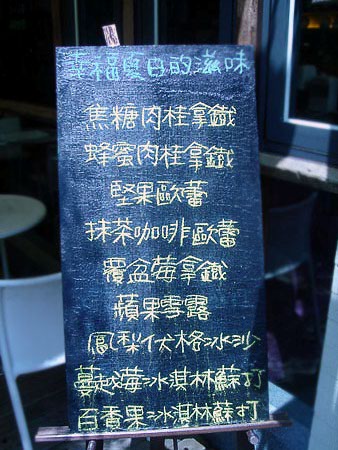 幸福夏日的滋味
焦糖肉桂拿鐵
蜂蜜肉桂拿鐵
堅果歐蕾
抹茶咖啡歐蕾
覆盆莓拿鐵
蘋果雪露
鳳梨优格冰沙
蔓越莓冰淇林蘇打
百香果冰淇林蘇打